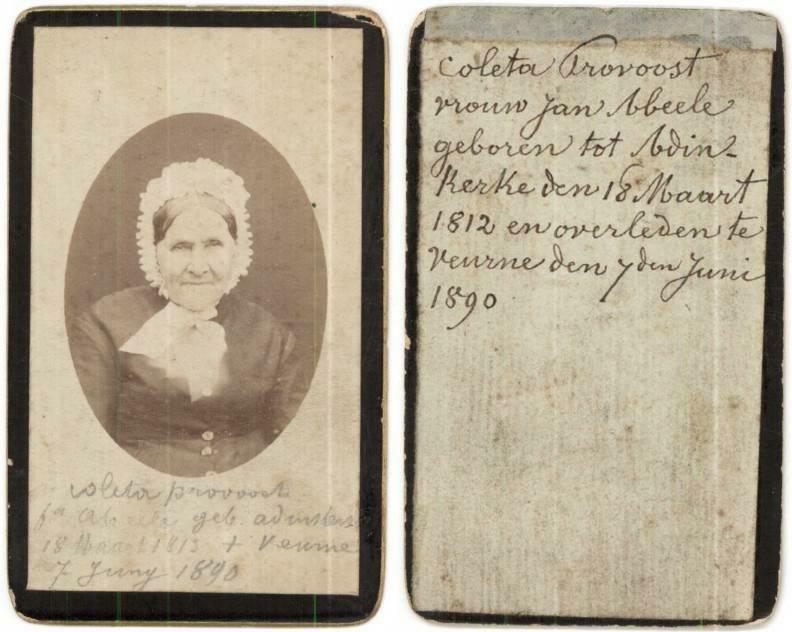 coleta provoost
fa Abeele geb. adinkerke
18 Maart 1813 + Veurne
7 Juny 1890
Coleta Provoost
vrouw Jan Abeele
geboren tot Adin-
kerke den 18 Maart
1812 en overleden te
Veurne den 7den Juni
1890